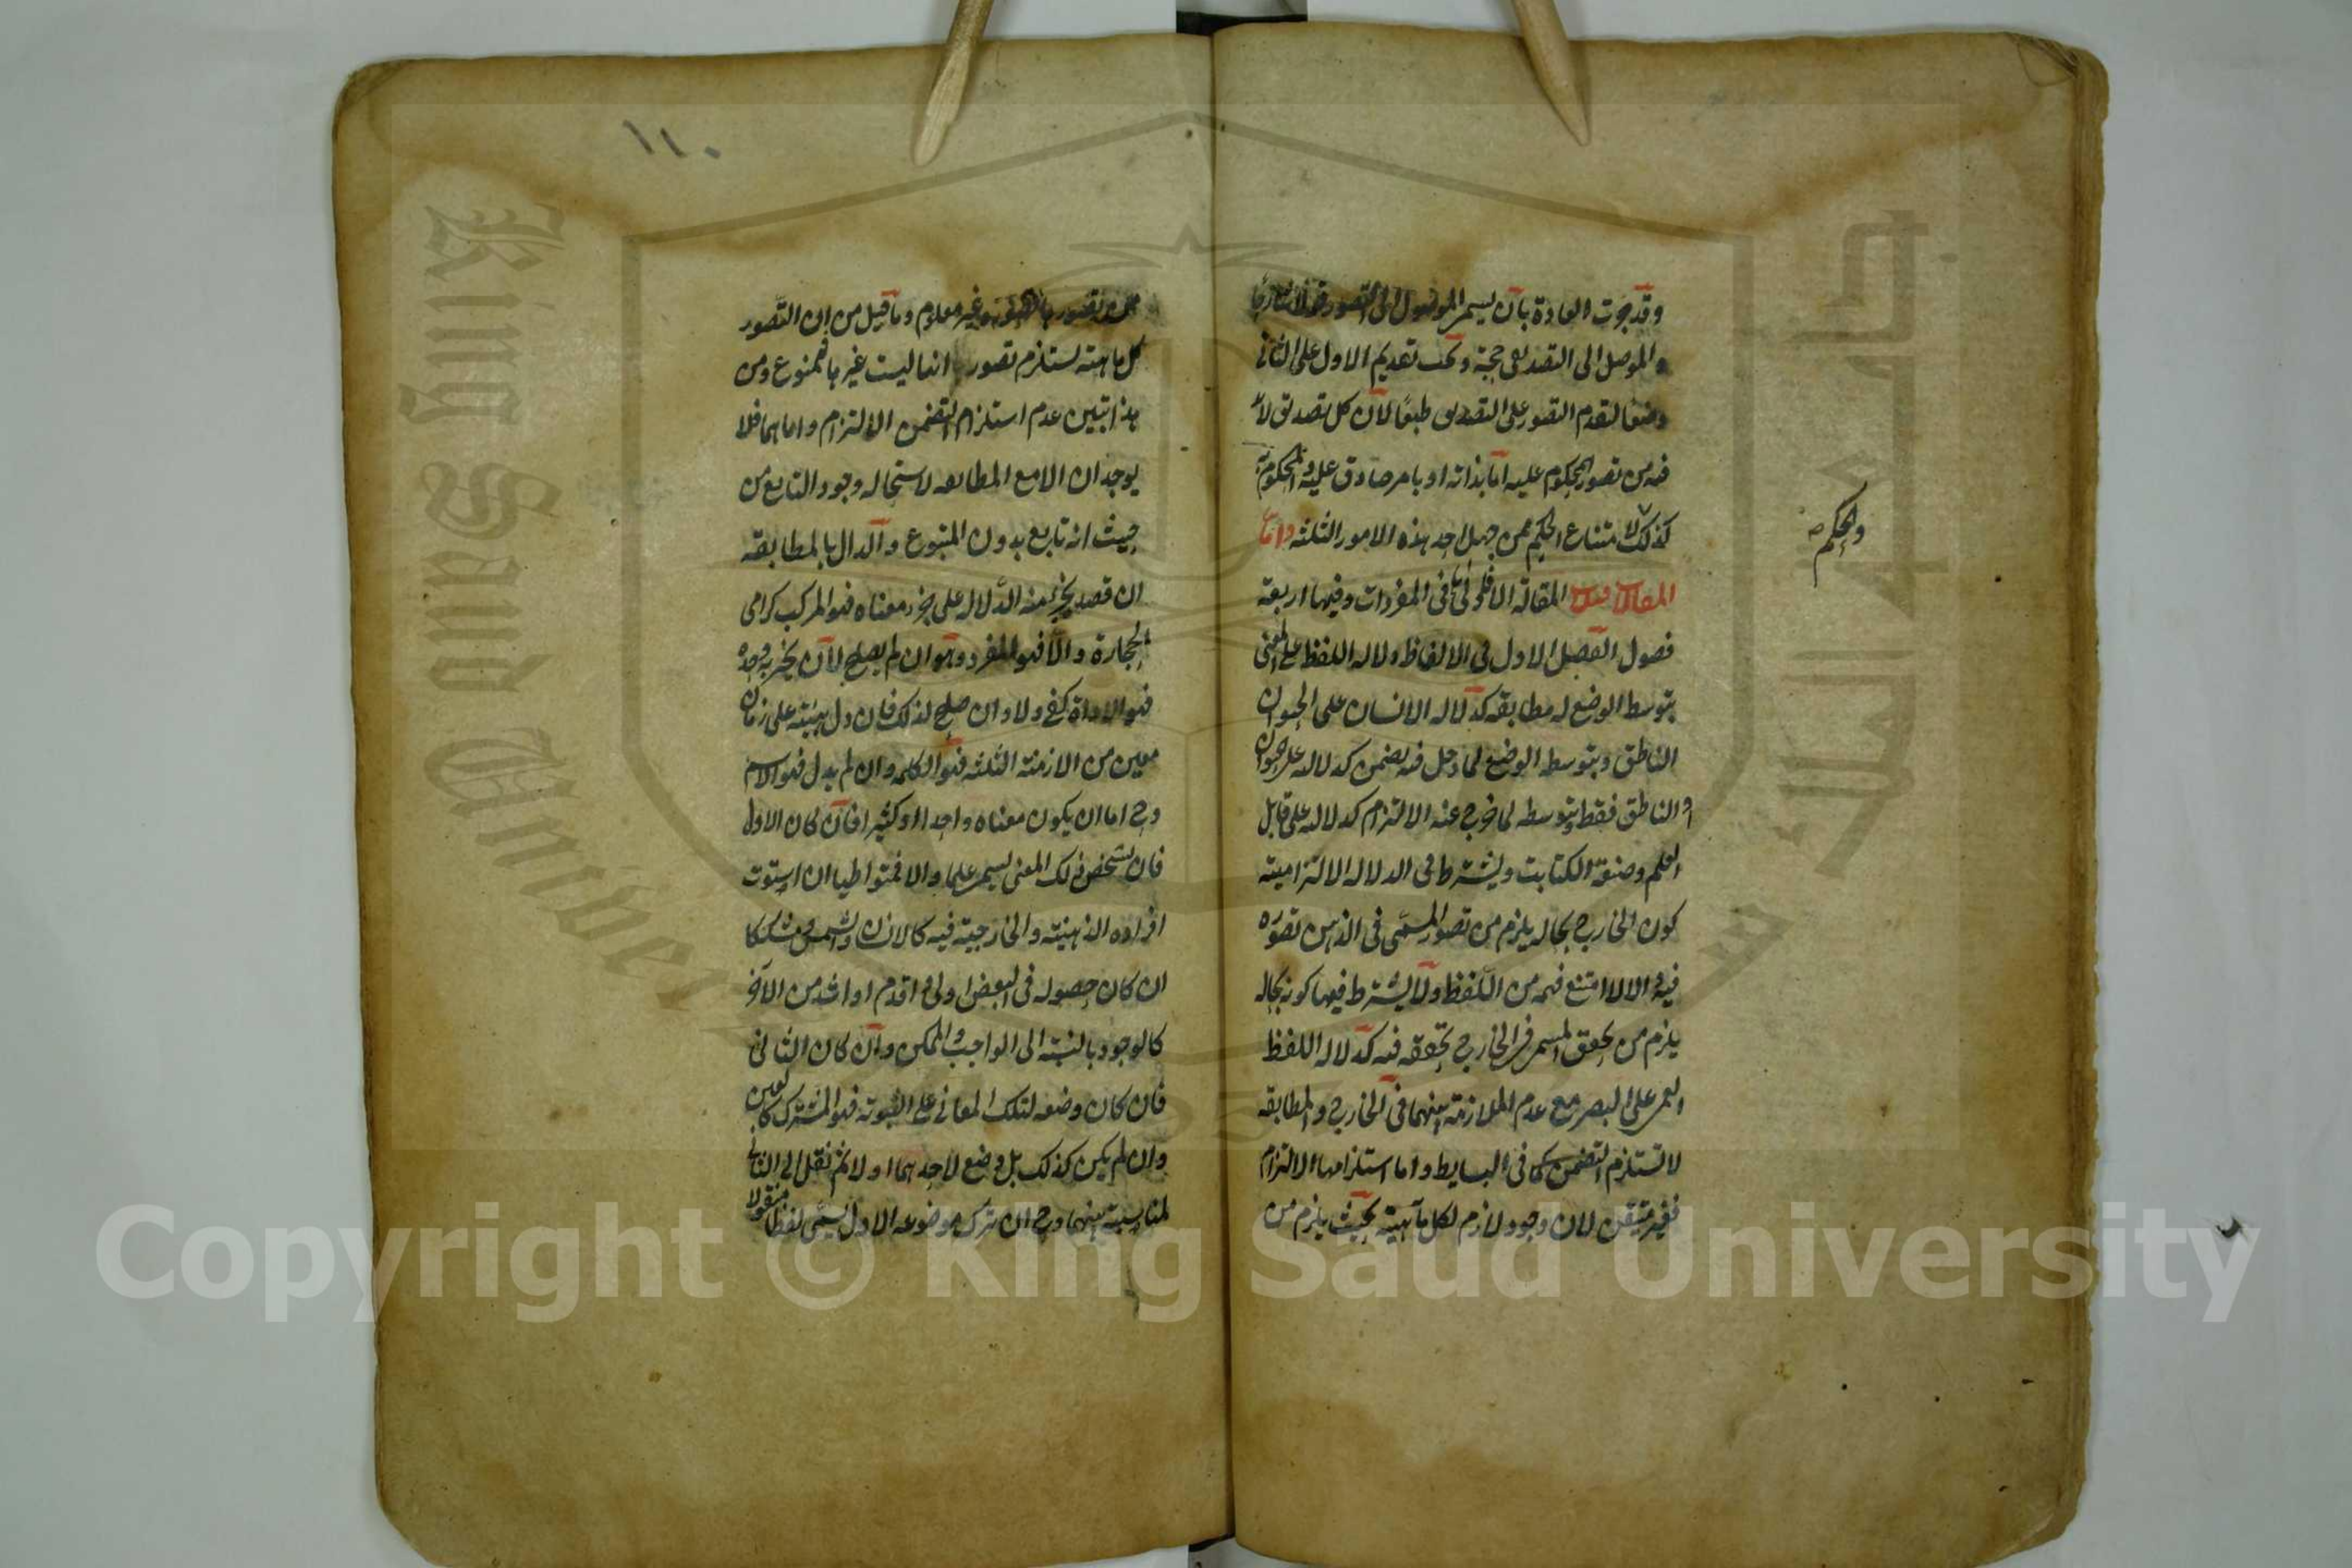 وقد جرت العادة بان يسمى الموصل الى التصور قولا شارحا
والموصل الى التصديق حجة ويجب تقديم الاول على الثاني
وضعا لتقدم التصور على التصديق طبعا لان كل تصديق لا بد
فيه من تصور المحكوم عليه اما بذاته او بامر صادق عليه والمحكوم به
كذلك لامتناع الحكم ممن جهل احد هذه الامور الثلثة واما
والحكم
المقالات فثلث المقالة الاولى في المفردات وفيها اربعة
فصول الفصل الاول في الالفاظ دلالة اللفظ على المعنى
بتوسط الوضع له مطابقة كدلالة الانسان على الحيوان
الناطق وبتوسط الوضع لما دخل فيه تضمن كدلالته على الحيوان
او الناطق فقط وبتوسطه لما خرج عنه الالتزام كدلالته على قابل
العلم وصنعة الكتابت ويشترط في الدلالة الالتزامية
كون الخارج بحالة يلزم من تصور المسمى في الذهن تصوره
فيه والا لامتنع فهمه من اللفظ ولا يشترط فيها كونه بحالة
يلزم من تحقق المسمى في الخارج تحققه فيه كدلالة اللفظ
العمى على البصر مع عدم الملازمة بينهما في الخارج والمطابقة
لا تستلزم التضمن كما في البسايط واما استلزامها الالتزام
فغير متيقن لان وجود لازم لكل ماهية بحيث يلزم من
١١٠
تصورها غير معلوم وما قيل من ان التصور
كل ماهية تستلزم تصور انها ليست غيرها فممنوع ومن
هذا تبين عدم استلزام التضمن الالتزام واما هما فلا
يوجدان الا مع المطابقة لاستحالة وجود التابع من
حيث انه تابع بدون المتبوع والدال بالمطابقة
ان قصد بجزء منه الدلالة على جزء معناه فهو المركب كرامى
الحجارة والا فهو المفرد وهو ان لم يصلح لان يخبر به وحده
فهو الاداة كفى ولا وان صلح لذلك فان دل بهيئته على زمان
معين من الازمنة الثلثة فهو الكلمة وان لم يدل فهو الاسم
وح اما ان يكون معناه واحدا او كثيرا فان كان الاول
فان تشخص ذلك المعنى يسمى علما والا فمتواطيا ان استوت
افراده الذهنية والخارجية فيه كالانسان والشمس ومشككا
ان كان حصوله في البعض اولى او اقدم او اشد من الآخر
كالوجود بالنسبة الى الواجب والممكن وان كان الثاني
فان كان وضعه لتلك المعاني على السوية فهو المشترك كالعين
وان لم يكن كذلك بل وضع لاحدهما اولا ثم نقل الى الثاني
لمناسبة بينهما وح ان ترك موضوعه الاول يسمى لفظا منقولا
Copyright © King Saud University
King Saud University